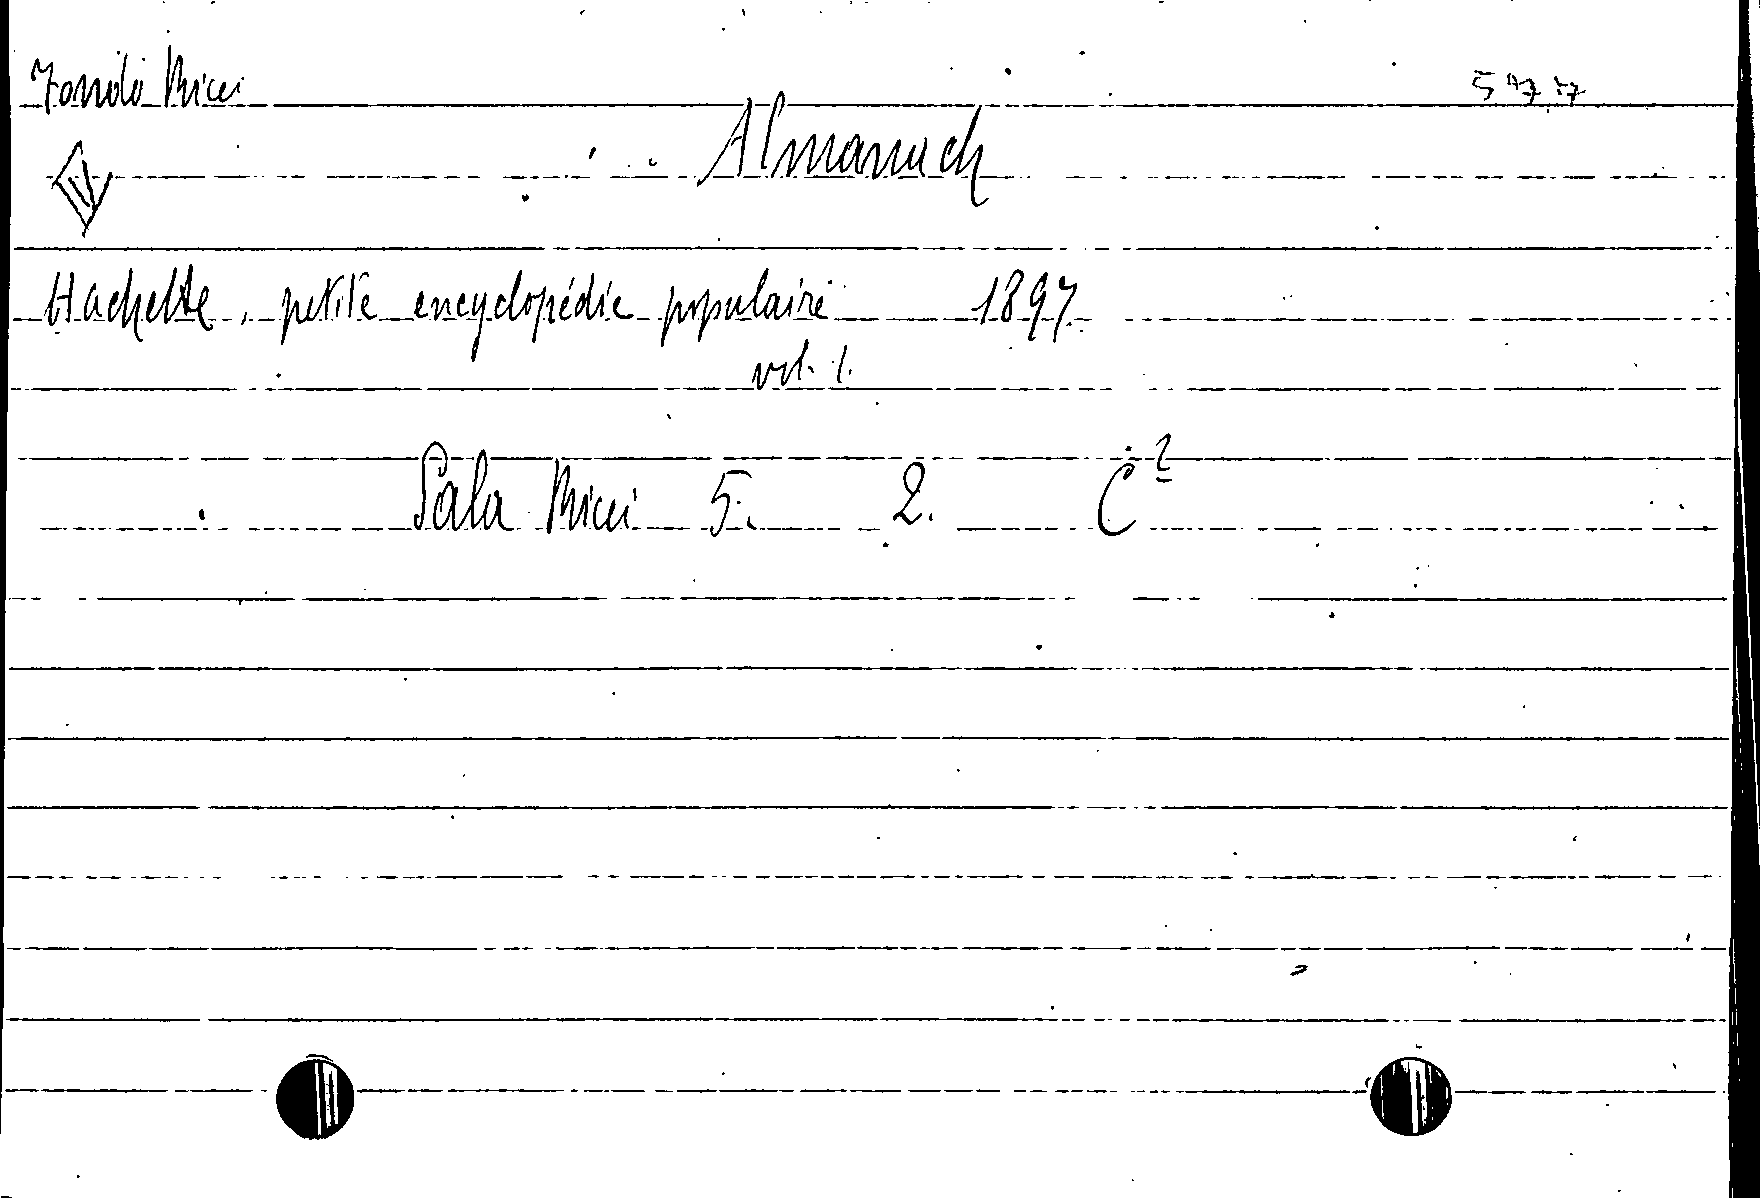 Fondo Ricci 5477
Almanach
IV
Hachette, petite encyclopédie populaire 1897
vol. 1.
Sala Ricci 5. 2. C²